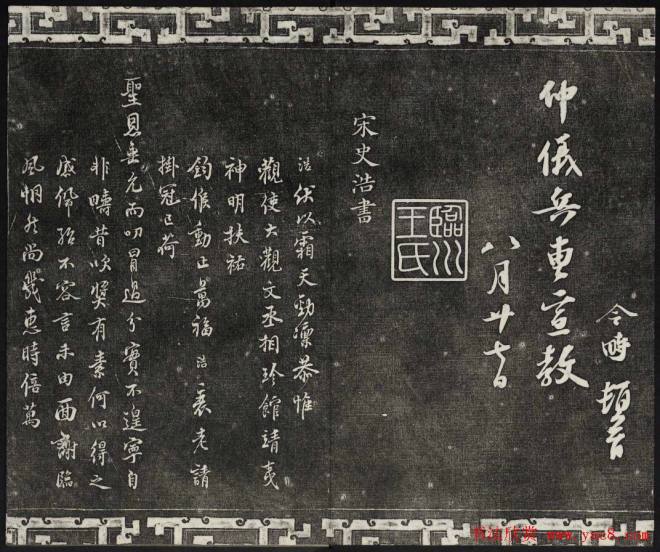 令畤 頓首
仲儀兵曹宣教
八月廿七日
臨川
王氏
宋史浩書
浩伏以霜天勁凜恭惟
觀使大觀文丞相珍館靖夷
神明扶祐
鈞候動止萬福浩衰老請
掛冠已荷
聖恩垂允而叨冒過分實不遑寧自
非疇昔吹獎有素何以得之
感佩殆不容言未由面謝臨
風悃然尚幾惠時倍萬
书法欣赏 www.yac8.com